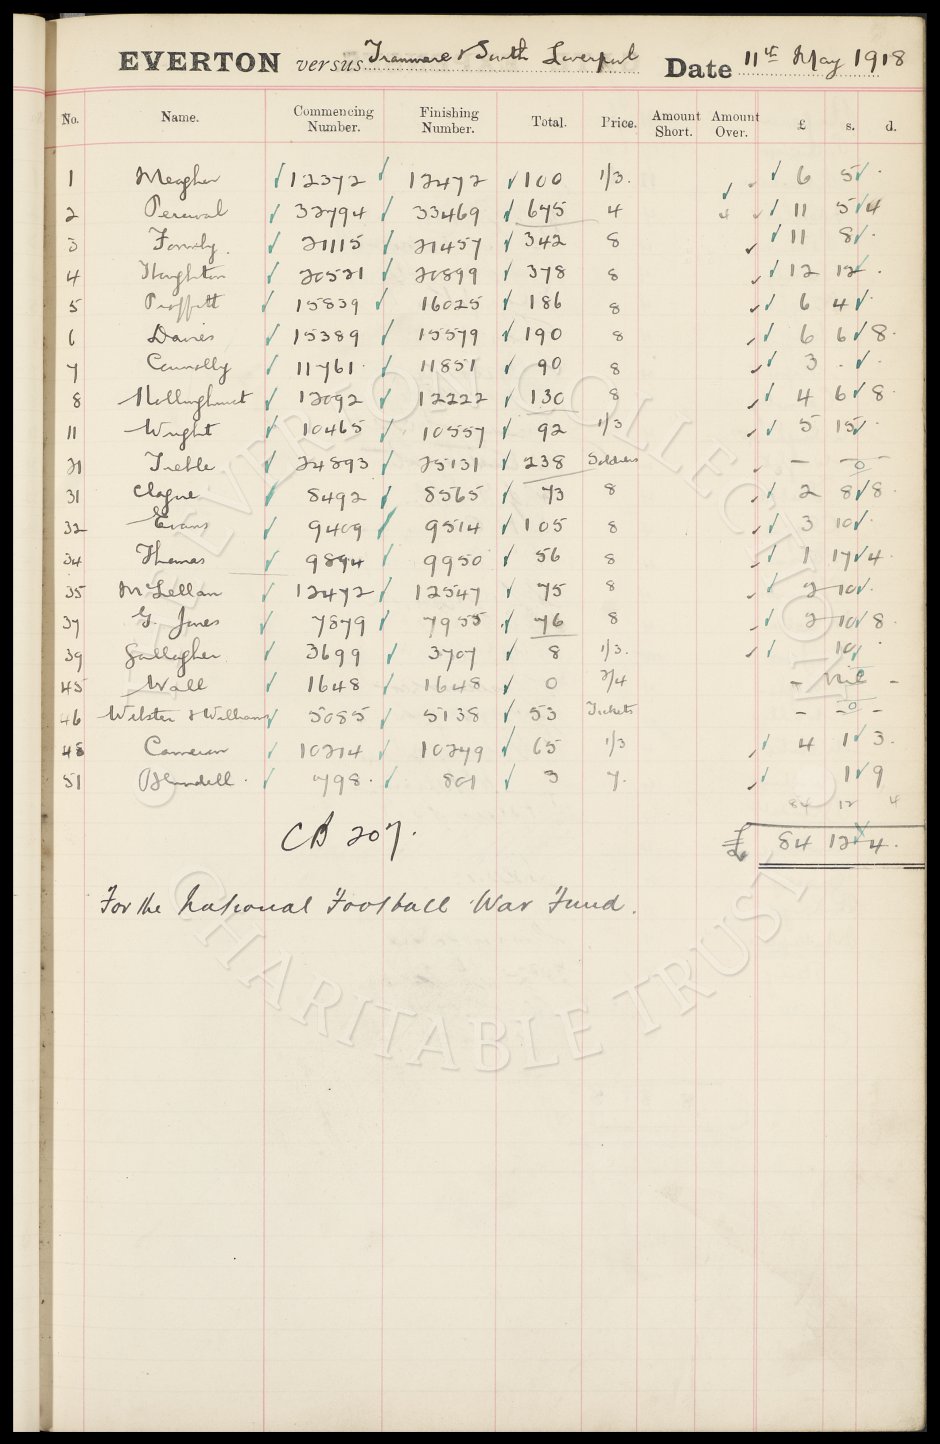 EVERTON versus Tranmere & South Liverpool Date 11th May 1918
No. Name. Commencing Number. Finishing Number. Total. Price. Amount Short. Amount Over. £ s. d.
1 Meagher 12372 12472 100 1/3. 6 5 .
2 Percival 32794 33469 675 4 4 11 5 4
3 Formby. 21115 21457 342 8 11 8 .
4 Houghton 20521 20899 378 8 12 12 .
5 Proffitt 15839 16025 186 8 6 4 .
6 Davies 15389 15579 190 8 6 6 8.
7 Connolly 11761 11851 90 8 3 . .
8 Hollinghurst 12092 12222 130 8 4 6 8.
11 Wright 10465 10557 92 1/3 5 15 .
21 Treble 24893 25131 238 Soldiers — 0 —
31 Clague 8492 8565 73 8 2 8 8.
32 Evans 9409 9514 105 8 3 10 .
34 Thomas 9894 9950 56 8 1 17 4.
35 McLellan 12472 12547 75 8 2 10 .
37 G. Jones 7879 7955 76 8 2 10 8
39 Gallagher. 3699 3707 8 1/3. 10 .
45 Wall 1648 1648 0 2/4 — Nil —
46 Webster & Williams 5085 5138 53 Tickets — 0 —
48 Cameron 10214 10279 65 1/3 4 1 3.
51 Blundell. 798. 801 3 7. 1 9
84 12 4
CB 207. £ 84 12 4.
For the National Football War Fund.
© EVERTON COLLECTION
CHARITABLE TRUST ©